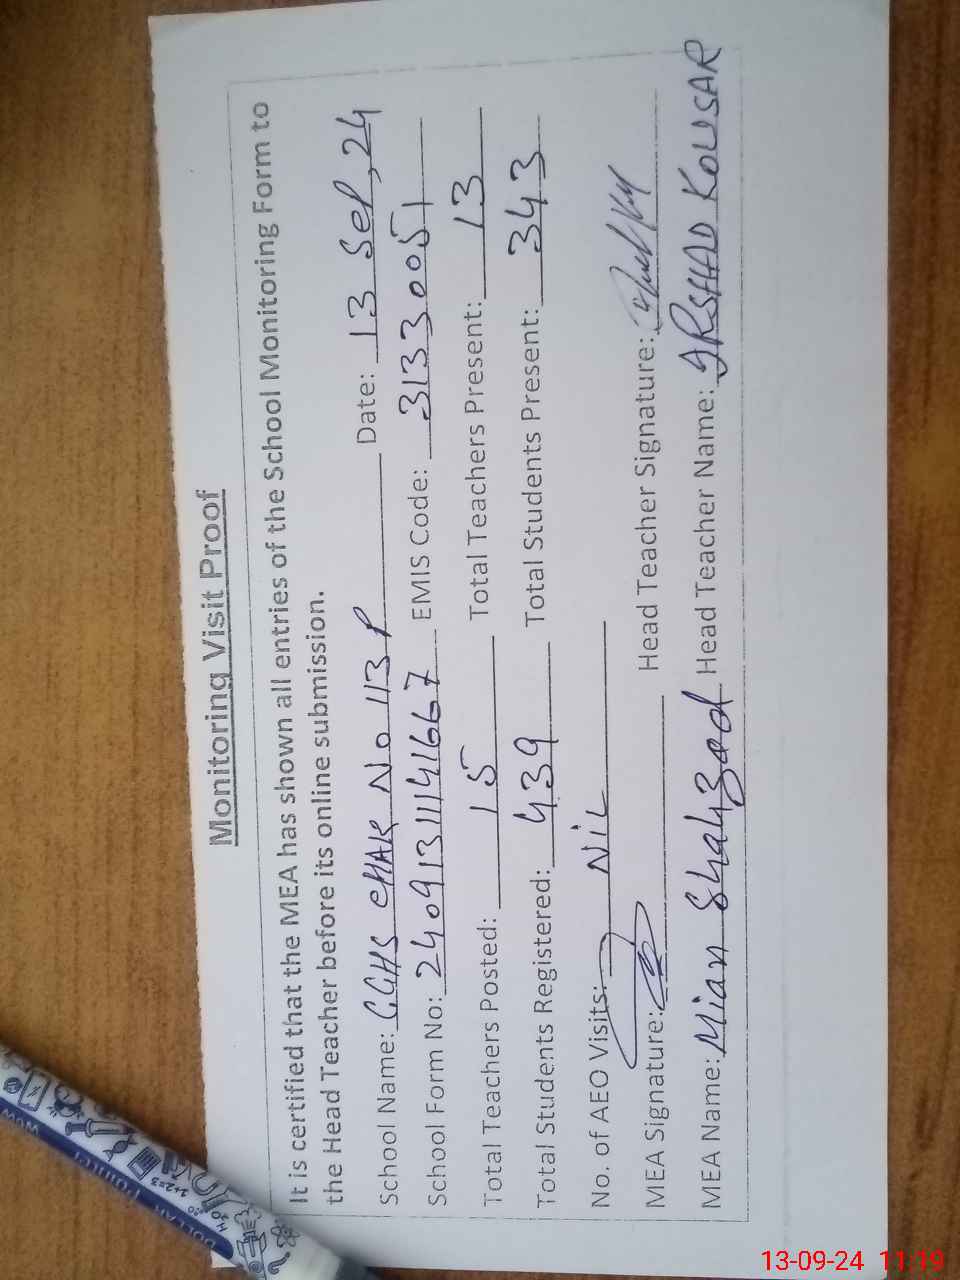 Monitoring Visit Proof
It is certified that the MEA has shown all entries of the School Monitoring Form to
the Head Teacher before its online submission.
School Name: GGHS CHAK No 113 P Date: 13 Sep, 24
School Form No: 24091311141667 EMIS Code: 31330051
Total Teachers Posted: 15 Total Teachers Present: 13
Total Students Registered: 439 Total Students Present: 343
No. of AEO Visits: NiL
MEA Signature: Head Teacher Signature:
MEA Name: Mian Shahzad Head Teacher Name: IRSHAD KOUSAR
DOLLAR Pointer WOW
H₂O
1+2=3
13-09-24 11:19